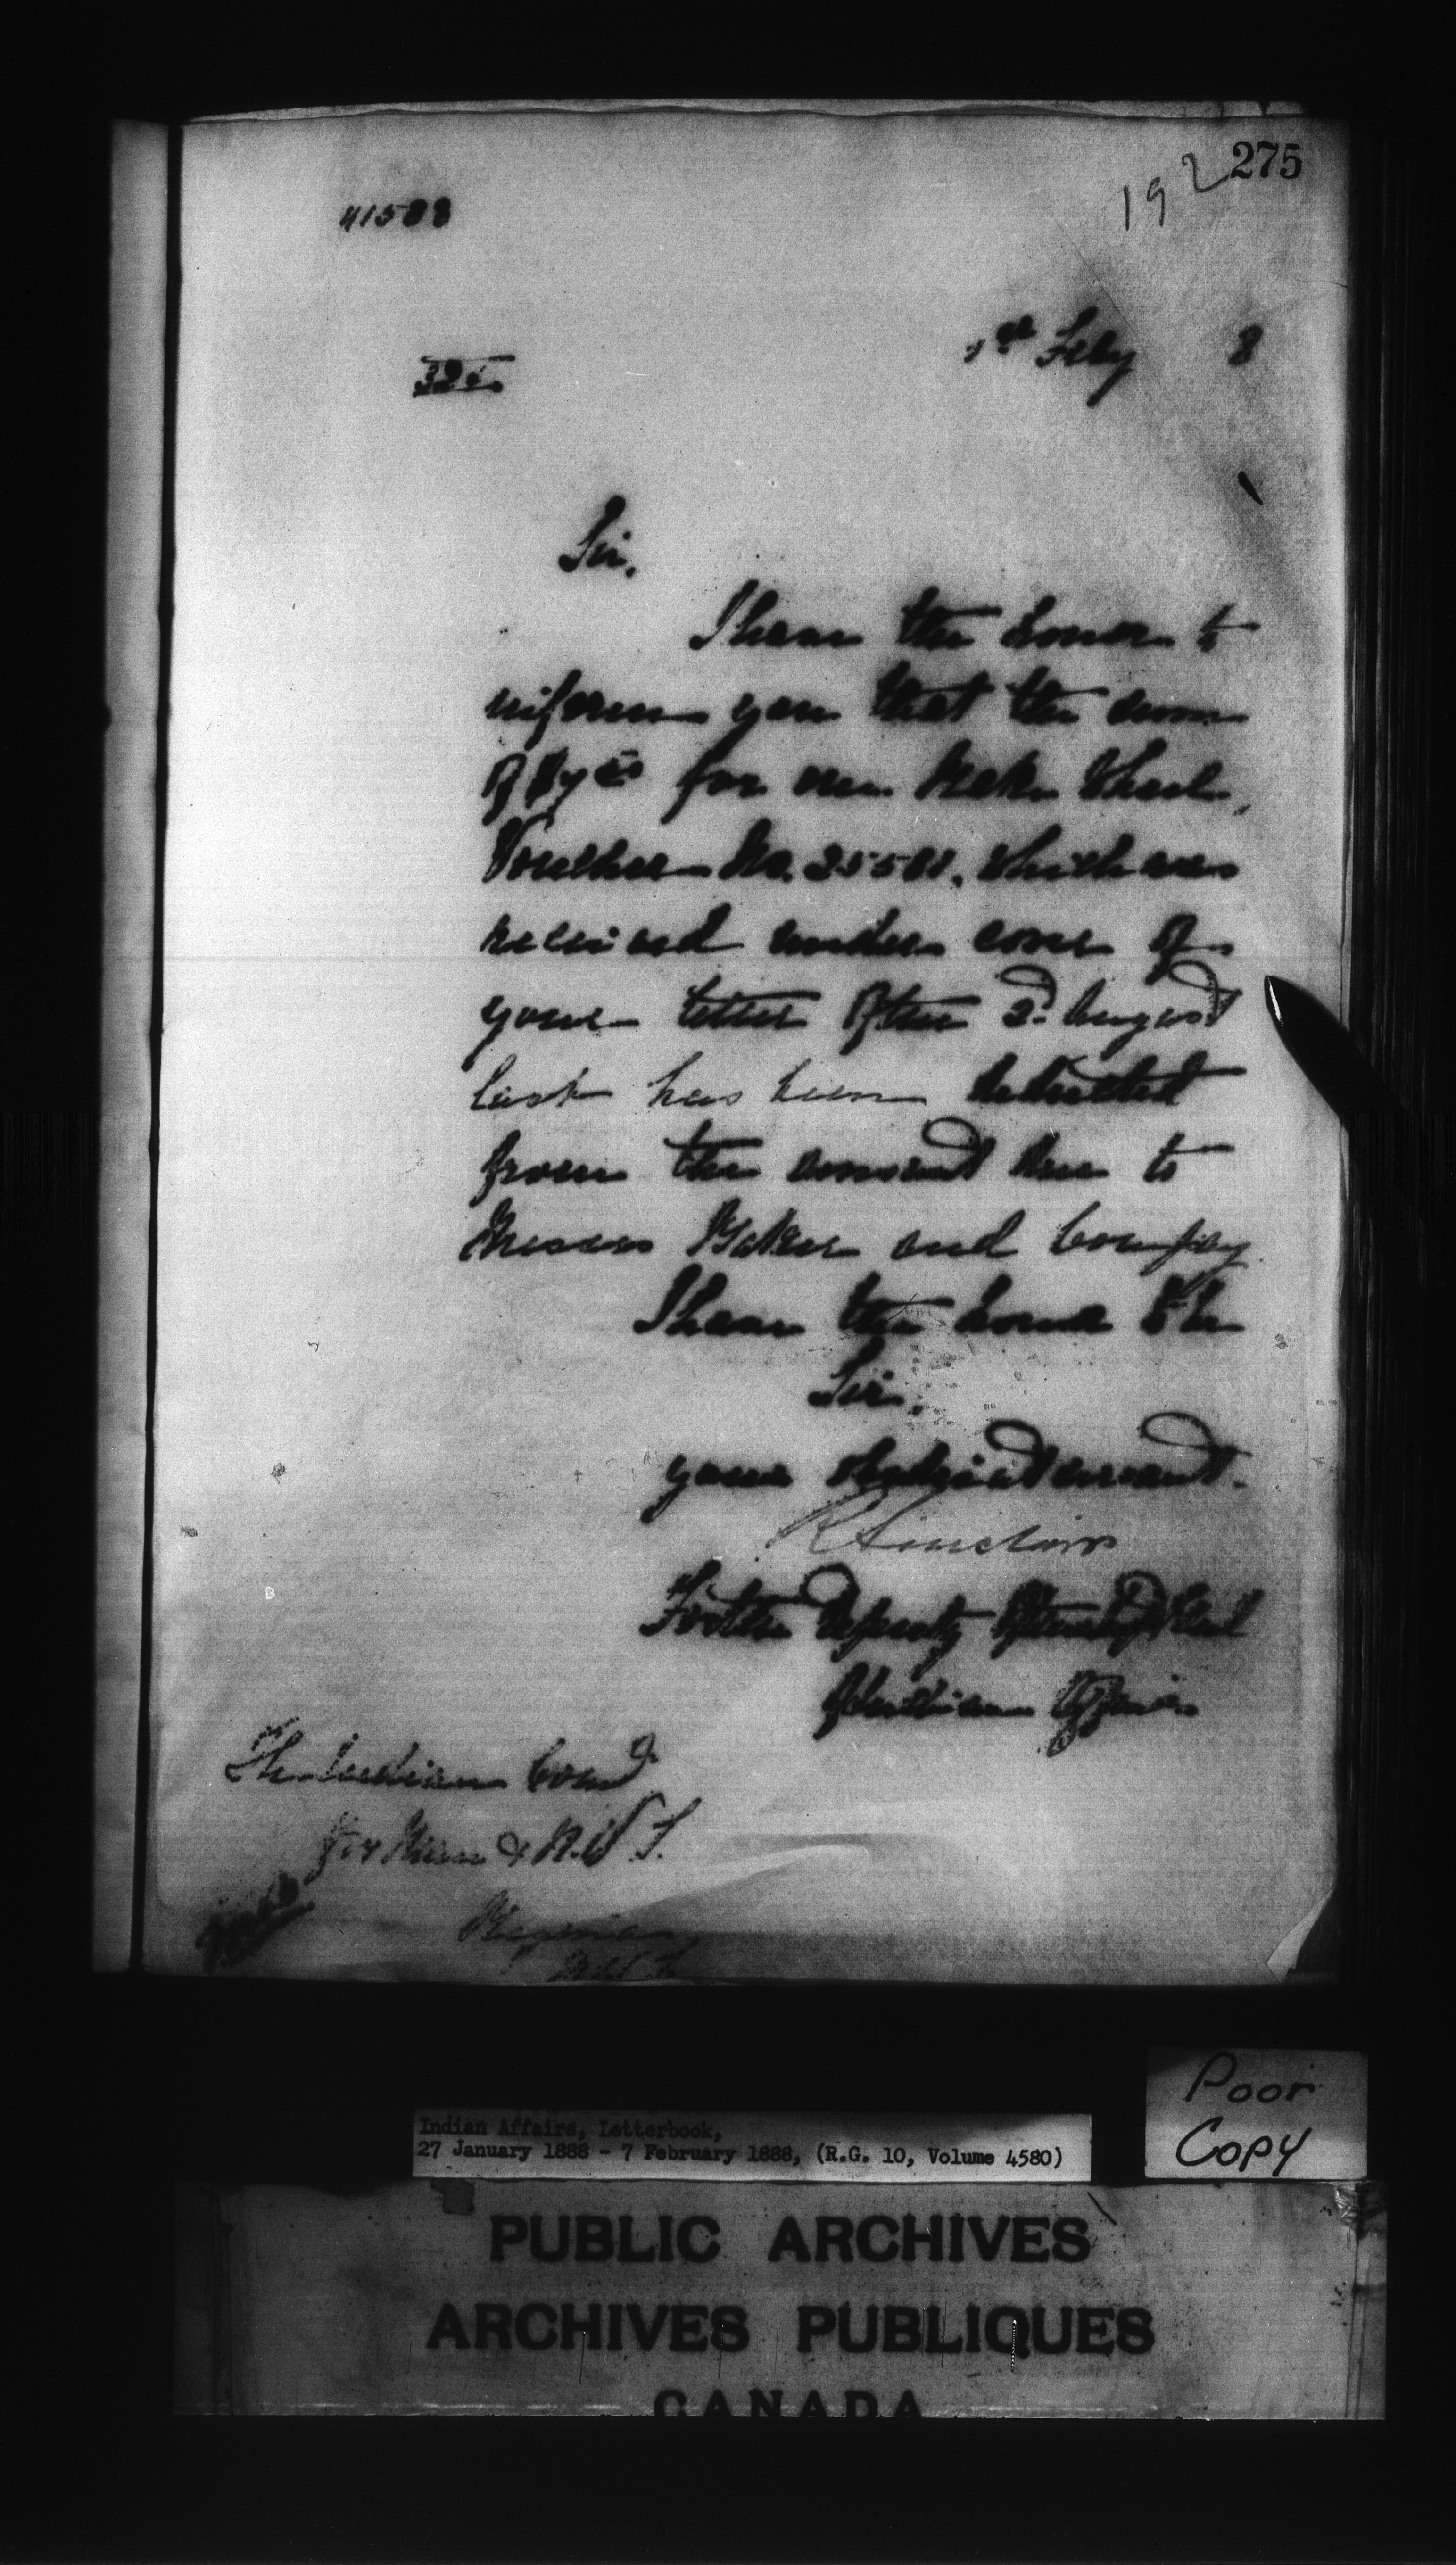 275
192
41588
1st Feby 8
Sir,
I have the honor to
inform you that the sum
of for one
Voucher No. 25581, which was
received under cover of
your letter of the 2d August
last has been deducted
from the amount due to
Messrs Baker and Company
I have the honor to be
Sir,
your obedient servant.
R Sinclair
For the Deputy of the Supt Genl
of Indian Affairs
The Indian Comr
for Man & N.W.T.
Regina
N.W.T.
Poor
Copy
Indian Affairs, Letterbook,
27 January 1888 - 7 February 1888, (R.G. 10, Volume 4580)
PUBLIC ARCHIVES
ARCHIVES PUBLIQUES
CANADA